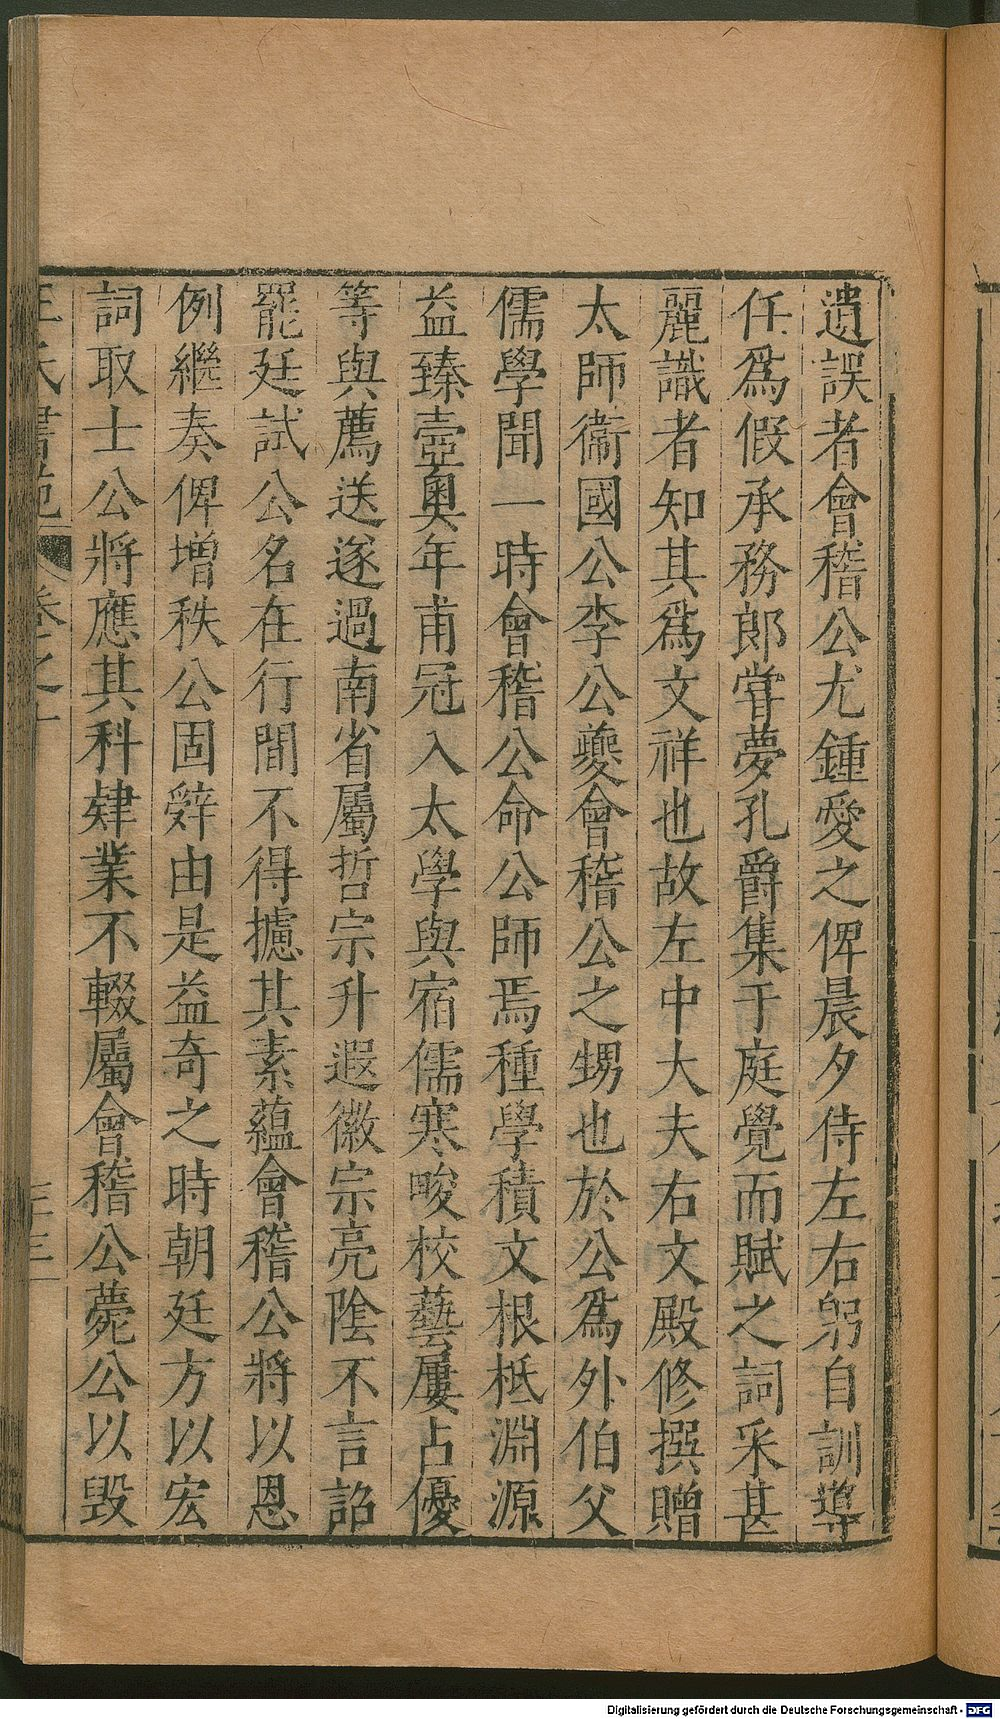 遺誤者會稽公尤鍾愛之俾晨夕侍左右躬自訓導
任爲假承務郎嘗夢孔爵集于庭覺而賦之詞采甚
麗識者知其爲文祥也故左中大夫右文殿修撰贈
太師衞國公李公夔會稽公之甥也於公爲外伯父
儒學聞一時會稽公命公師焉種學積文根柢淵源
益臻壼奧年甫冠入太學與宿儒寒畯校藝屢占優
等與薦送遂過南省屬哲宗升遐徽宗亮陰不言詔
罷廷試公名在行間不得攄其素蘊會稽公將以恩
例繼奏俾增秩公固辤由是益奇之時朝廷方以宏
詞取士公將應其科肄業不輟屬會稽公薨公以毀
王氏書苑 卷之十
Digitalisierung gefördert durch die Deutsche Forschungsgemeinschaft - DFG